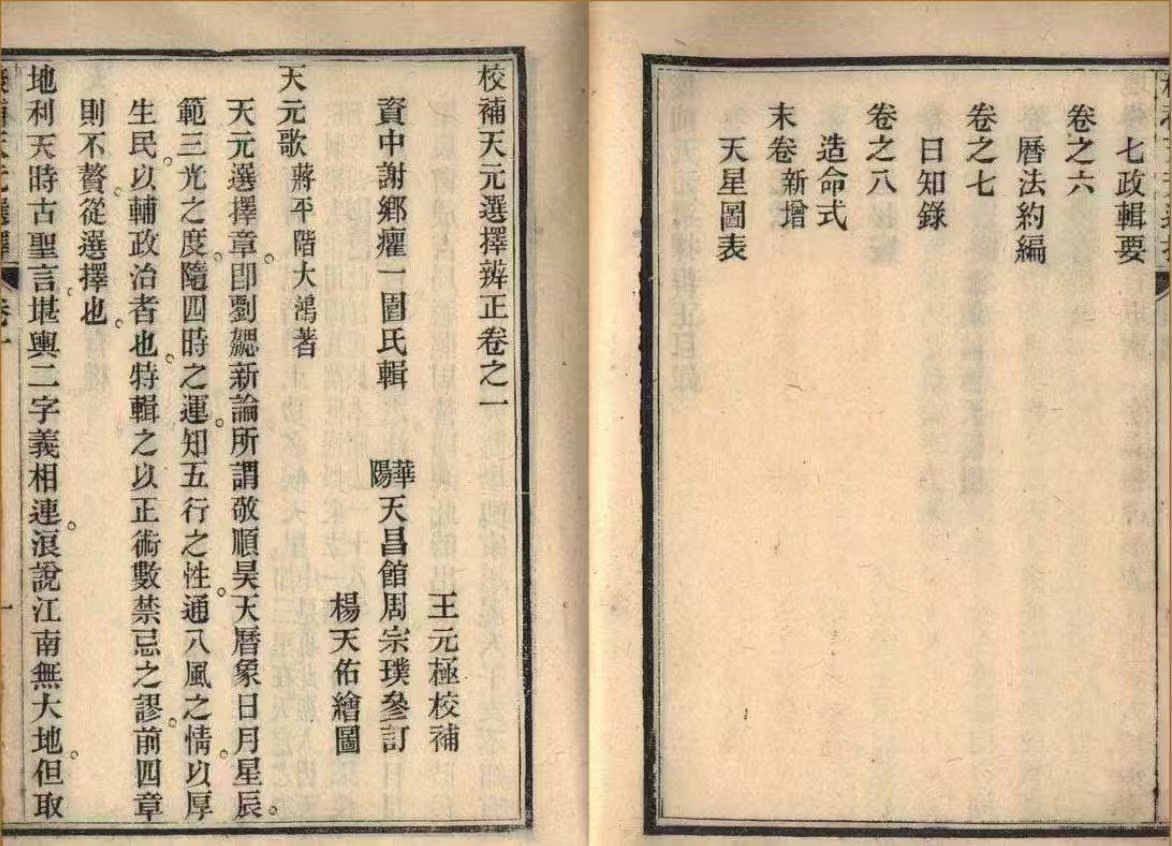 七政輯要
卷之六
曆法約編
卷之七
日知錄
卷之八
造命式
末卷新增
天星圖表
校補天元選擇辨正卷之一
王元極校補
資中謝鄉癯一圄氏輯 華陽天昌館周宗璞參訂
楊天佑繪圖
天元歌 蔣平階大鴻著
天元選擇章。卽劉勰新論所謂敬順昊天曆象日月星辰。
範三光之度。隨四時之運。知五行之性。通八風之情。以厚
生民。以輔政治者也。特輯之以正術數禁忌之謬。前四章
則不贅。從選擇也。
地利天時古聖言。堪輿二字義相連。浪說江南無大地。但取